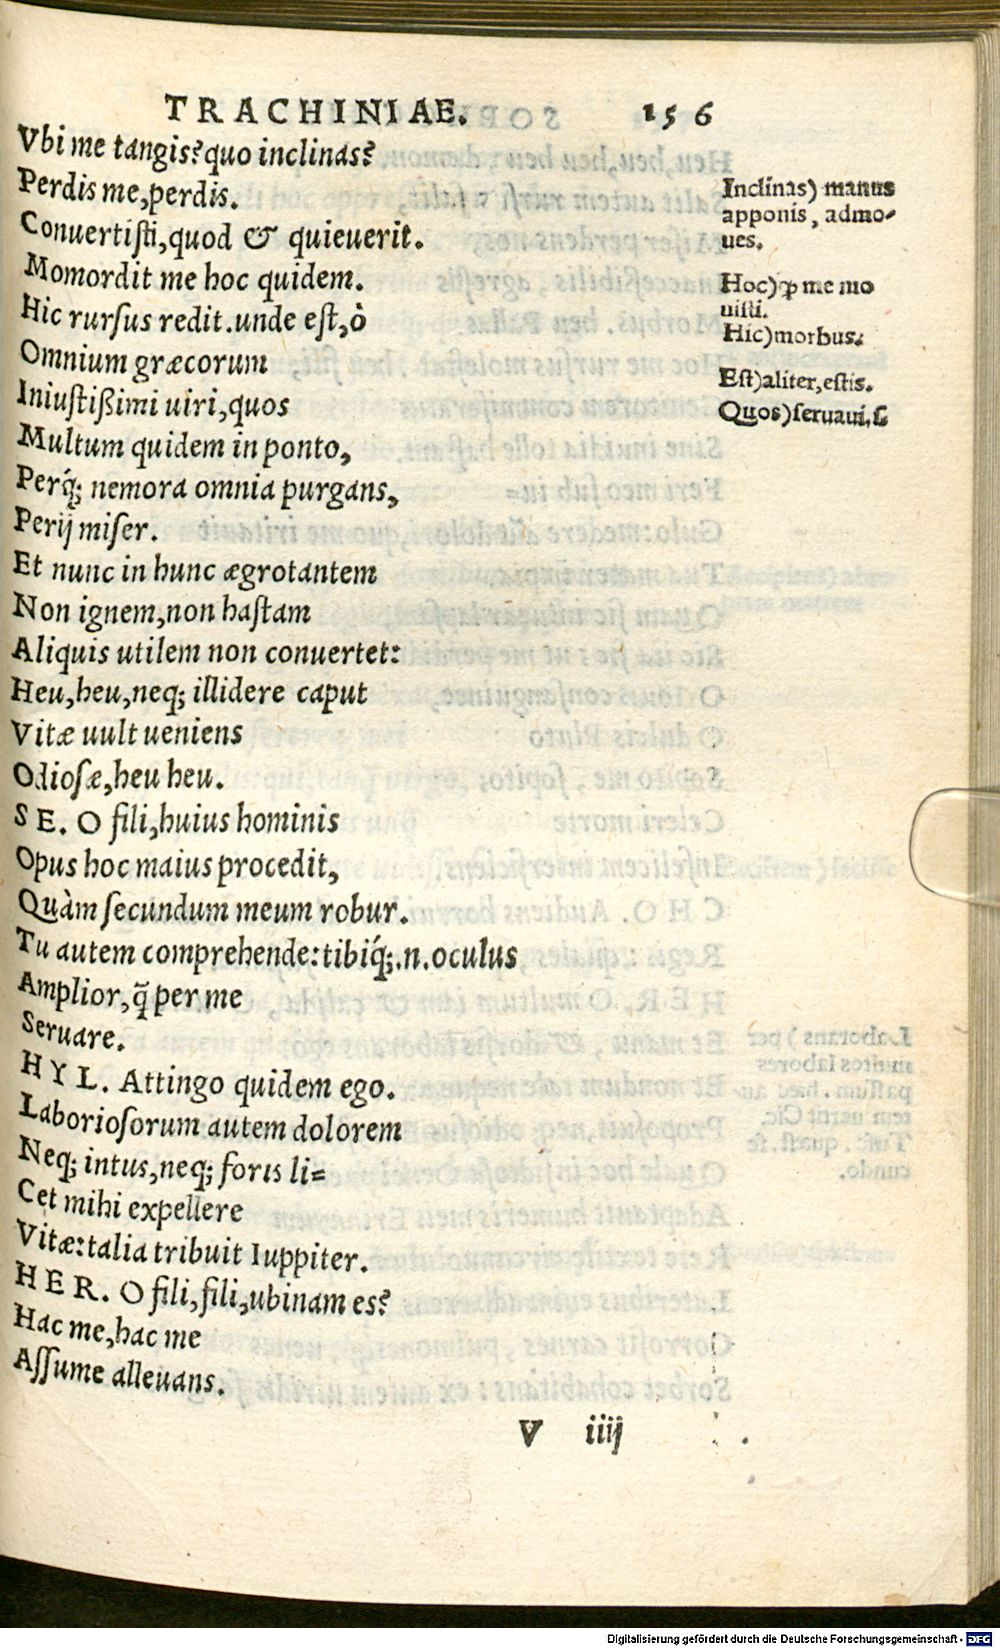 TRACHINIAE. 156
Vbi me tangis? quo inclinas?
Perdis me, perdis.
Conuertiſti, quod & quieuerit.
Momordit me hoc quidem.
Hic rurſus redit. unde eſt, ò
Omnium græcorum
Iniuſtißimi uiri, quos
Multum quidem in ponto,
Perq́; nemora omnia purgans,
Perij miſer.
Et nunc in hunc ægrotantem
Non ignem, non haſtam
Aliquis utilem non conuertet:
Heu, heu, neq; illidere caput
Vitæ uult ueniens
Odioſæ, heu heu.
SE. O fili, huius hominis
Opus hoc maius procedit,
Quàm ſecundum meum robur.
Tu autem comprehende: tibiq́;.n. oculus
Amplior, q̃ per me
Seruare.
HYL. Attingo quidem ego.
Laborioſorum autem dolorem
Neq; intus, neq; foris li=
Cet mihi expellere
Vitæ: talia tribuit Iuppiter.
HER. O fili, fili, ubinam es?
Hac me, hac me
Aſſume alleuans.
Inclinas) manus
apponis, admo-
ues.
Hoc) ꝙ me mo
uiſti.
Hic) morbus.
Eſt) aliter, eſtis.
Quos) ſeruaui, ſ.
V iiij
Digitalisierung gefördert durch die Deutsche Forschungsgemeinschaft - DFG